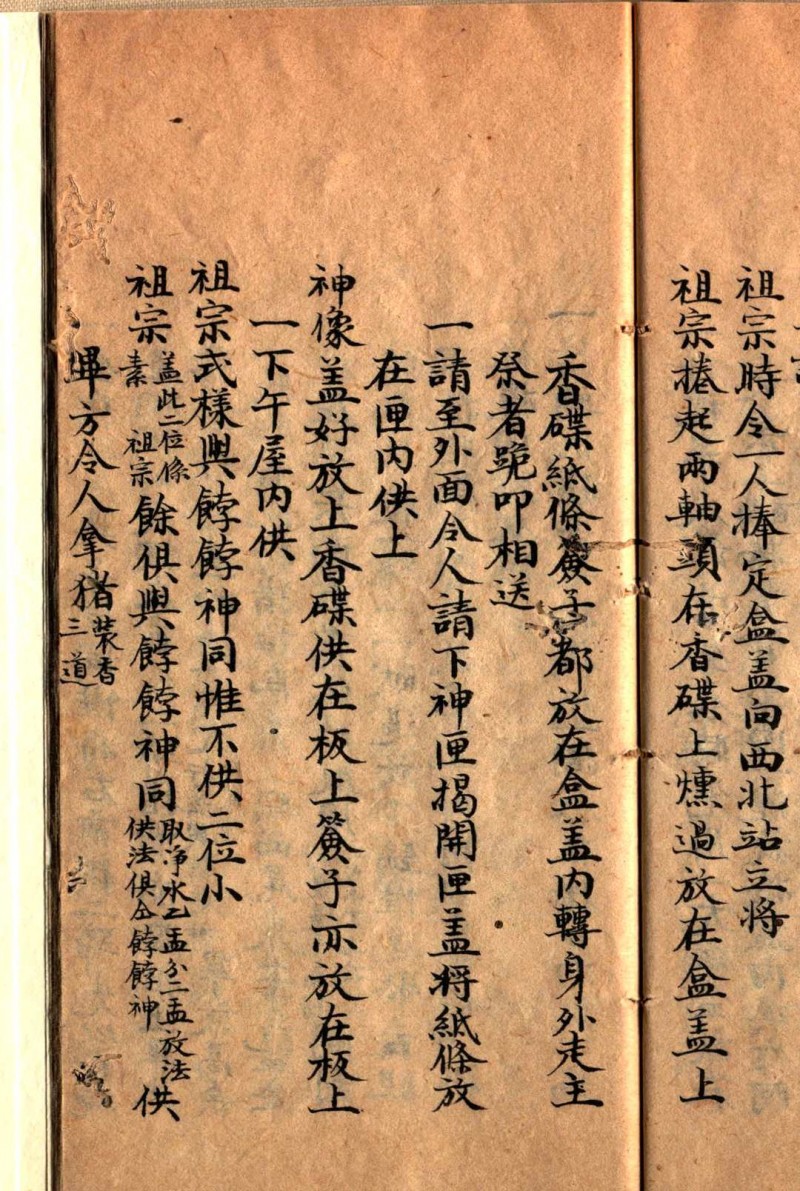 祖宗時令一人捧定盒盖向西北站立將
祖宗捲起兩軸頭在香碟上燻過放在盒盖上
香碟紙條簽子都放在盒盖内轉身外走主
祭者跪叩相送
一請至外面令人請下神匣揭開匣盖將紙條放
在匣内供上
神像盖好放上香碟供在板上簽子亦放在板上
一下午屋内供
祖宗式樣與餑餑神同惟不供二位小
祖宗盖此二位係素祖宗餘俱與餑餑神同取净水乙盂分二盂放法供法俱仝餑餑神供
畢方令人拿猪装香三道